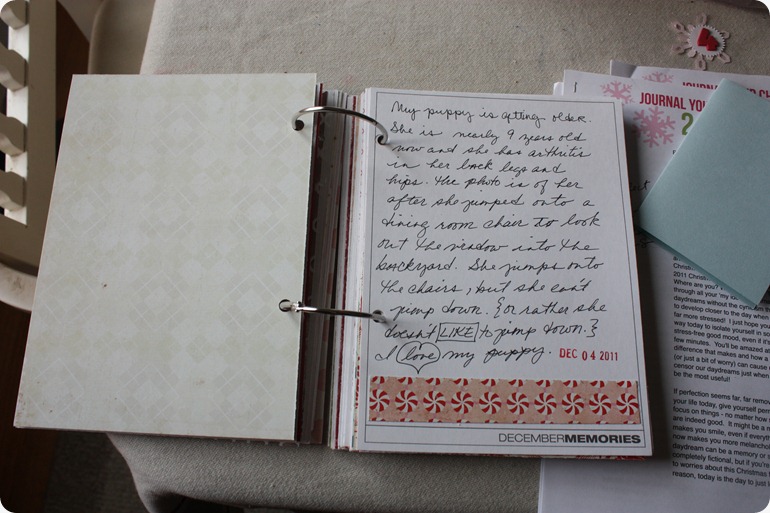 My puppy is getting older.
She is nearly 9 years old
now and she has arthritis
in her back legs and
hips. The photo is of her
after she jumped onto a
dining room chair to look
out the window into the
backyard. She jumps onto
the chairs, but she can't
jump down. {or rather she
doesn't LIKE to jump down.}
I love my puppy. DEC 04 2011
DECEMBERMEMORIES
JOURNAL
JOURNAL YOU
2
2011
Where are you?
through all your 'my
daydreams without the
to develop closer to the day when
far more stressed! I just hope you
way today to isolate yourself in so
stress-free good mood, even if it's
few minutes. You'll be amazed at
difference that makes and how a
(or just a bit of worry) can cause
censor our daydreams just when
be the most useful!
If perfection seems far, far remov
your life today, give yourself perm
focus on things - no matter how s
are indeed good. It might be a m
makes you smile, even if everyth
now makes you more melancho
daydream can be a memory or s
completely fictional, but if you're
to worries about this Christmas f
reason, today is the day to just l